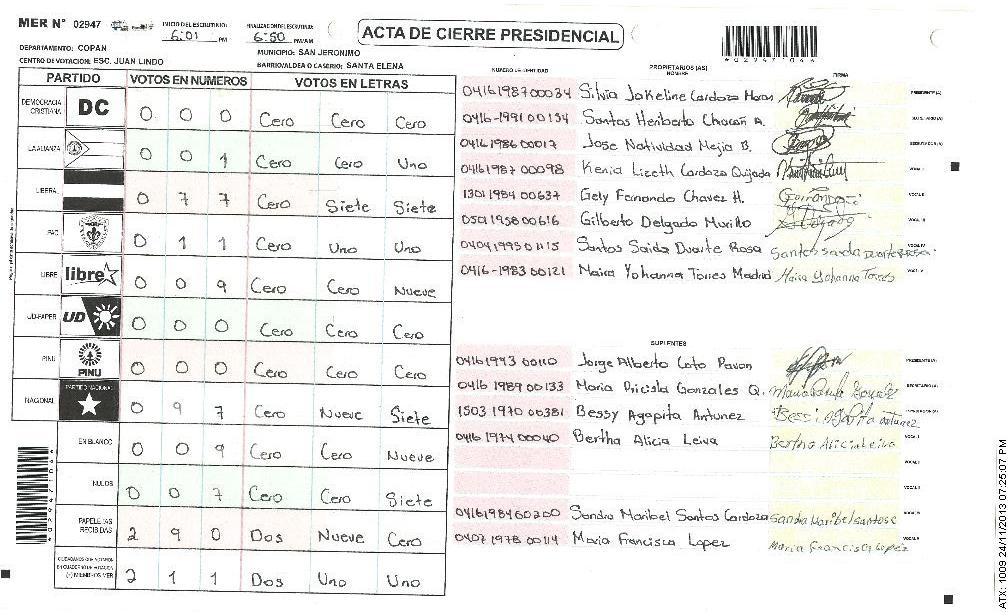 MER N° 02947
INICIO DEL ESCRUTINIO: 6:01 PM
FINALIZACION DEL ESCRUTINIO: 6:50 PM/AM
ACTA DE CIERRE PRESIDENCIAL
DEPARTAMENTO: COPAN
MUNICIPIO: SAN JERONIMO
CENTRO DE VOTACION: ESC. JUAN LINDO
BARRIO/ALDEA O CASERIO: SANTA ELENA
PARTIDO VOTOS EN NUMEROS VOTOS EN LETRAS
DEMOCRACIA CRISTIANA DC 0 0 0 Cero Cero Cero
LA ALIANZA 0 0 1 Cero Cero Uno
LIBERAL 0 7 7 Cero Siete Siete
PAC 0 1 1 Cero Uno Uno
LIBRE libre 0 0 9 Cero Cero Nueve
UD-FAPER UD 0 0 0 Cero Cero Cero
PINU PINU 0 0 0 Cero Cero Cero
NACIONAL PARTIDO NACIONAL 0 9 7 Cero Nueve Siete
EN BLANCO 0 0 9 Cero Cero Nueve
NULOS 0 0 7 Cero Cero Siete
PAPELETAS RECIBIDAS 2 9 0 Dos Nueve Cero
CIUDADANOS QUE VOTARON EN CUADERNO DE VOTACION (+) MIEMBROS MER 2 1 1 Dos Uno Uno
NUMERO DE IDENTIDAD PROPIETARIOS (AS) NOMBRE FIRMA
0416198700034 Silvia Jakeline Cardoza PRESIDENTE (A)
0416-1991 00154 Santos Heriberto A. SECRETARIO (A)
0416 1986 00017 Jose Natividad Mejia B.
0416 1987 00098 Kenia Lizeth Cardoza Quijada VOCAL I
1301 1984 00637 Gely Fernando Chavez H. VOCAL II
0501 1958 00616 Gilberto Delgado Murillo VOCAL III
0404 1995 01115 Santos Saida Duarte Rosa VOCAL IV
0416-1983 00121 Maira Yohanna Torres Madrid Maira Yohanna Torres VOCAL V
SUPLENTES
0416 1993 00110 Jorge Alberto Coto Pavon PRESIDENTE (A)
0416 1989 00133 Maria Gonzales Q. SECRETARIO (A)
1503 1970 00381 Bessy Agapita Antunez
0416 1974 00040 Bertha Alicia Leiva Bertha Alicia Leiva VOCAL I
VOCAL II
VOCAL III
0416198460200 Sandra Maribel Santos Cardoza VOCAL IV
0407 1978 00114 Maria Francisca Lopez Maria Francisca Lopez VOCAL V
ATX: 1009 24/11/2013 07:25:07 PM